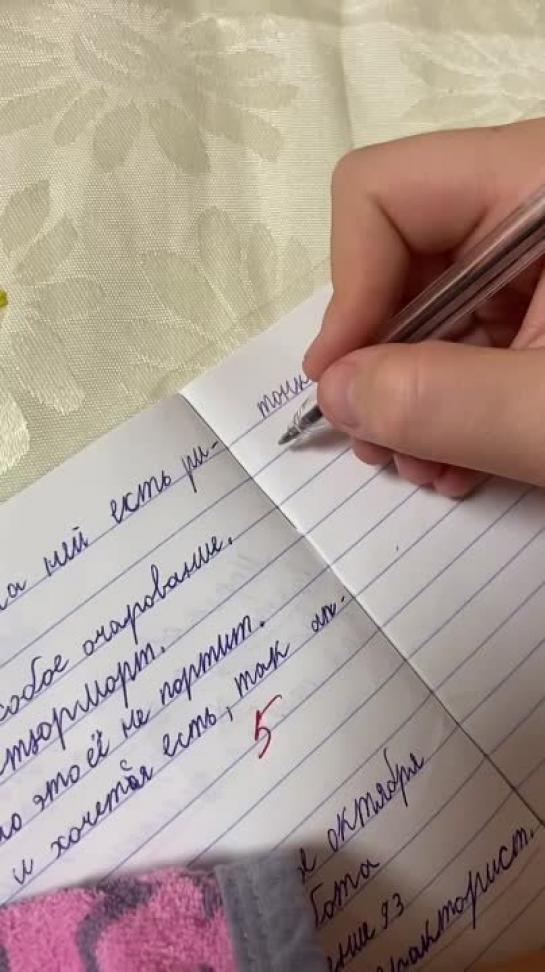 на ней есть ри-
собое очарование.
тюрморт.
но это её не портит.
и хочется есть, так ап-
5
октября
бота
ение 93
ракторист.
тонк